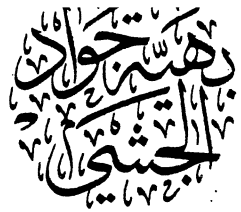 بهيّة جواد
الجشي